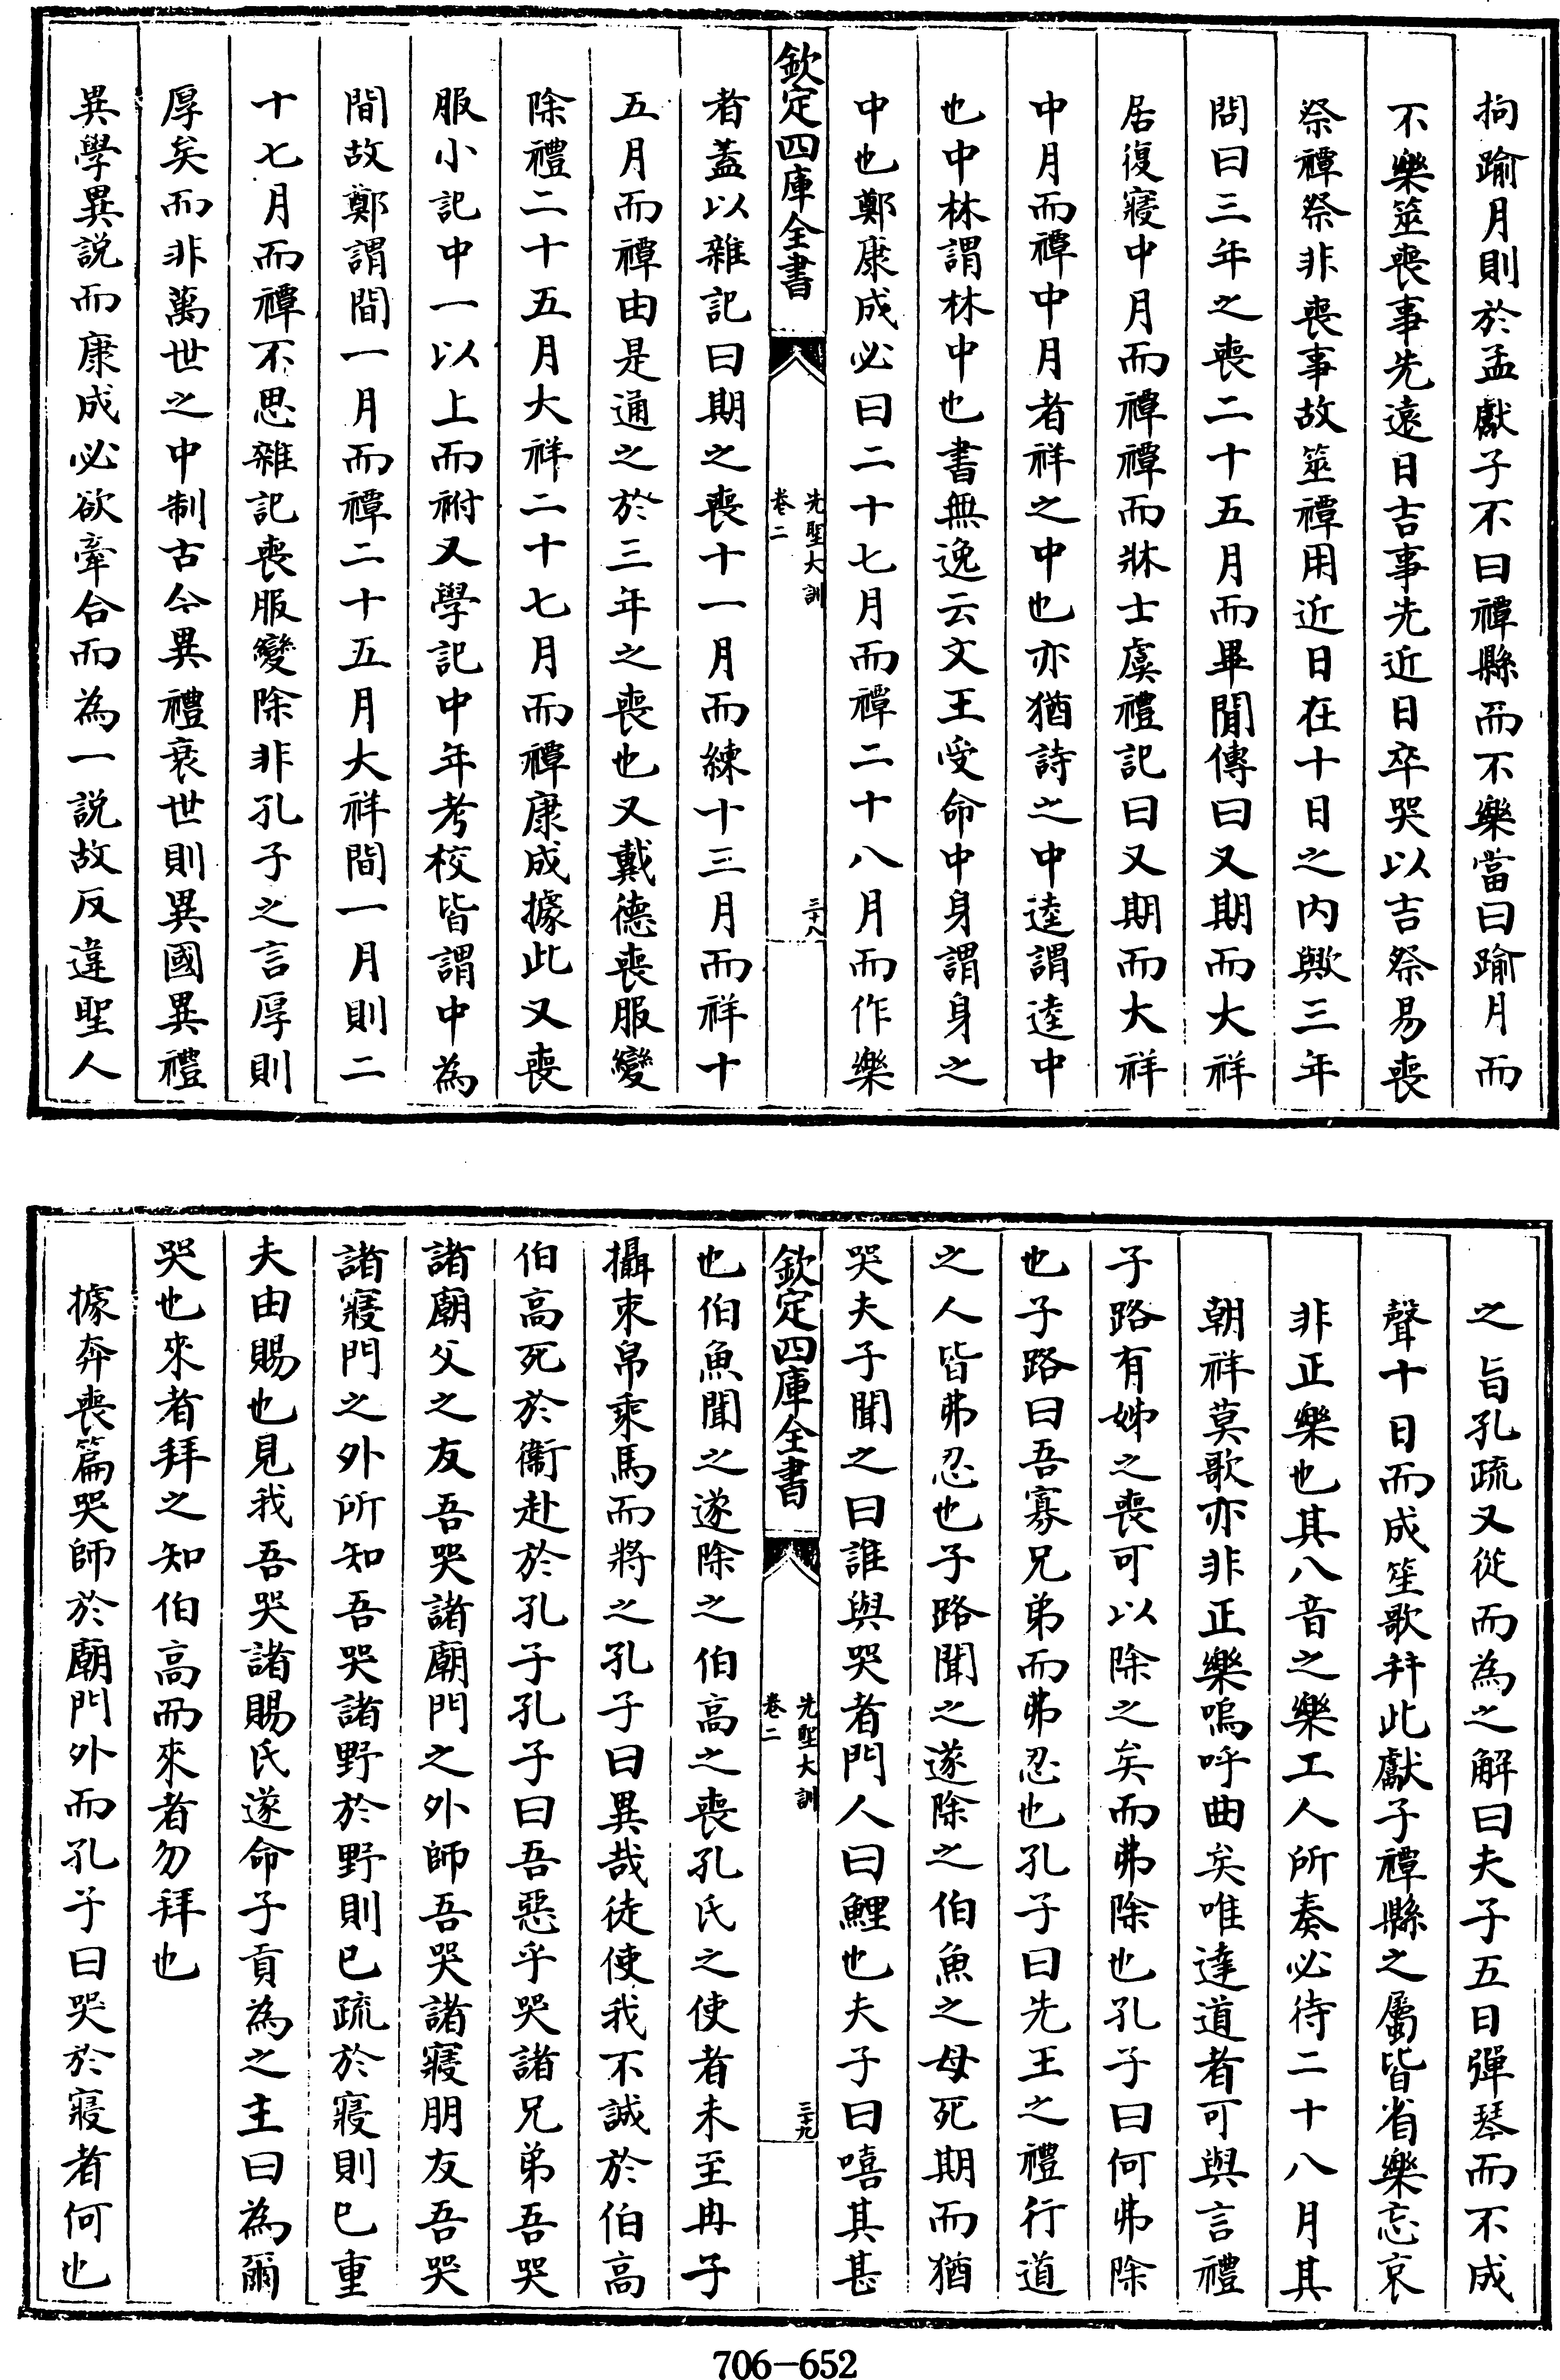 拘踰月則於孟獻子不曰禫縣而不樂當曰踰月而
不樂筮喪事先遠日吉事先近日卒哭以吉祭易喪
祭禫祭非喪事故筮禫用近日在十日之内歟三年
問曰三年之喪二十五月而畢閒傳曰又期而大祥
居復寢中月而禫禫而牀士虞禮記曰又期而大祥
中月而禫中月者祥之中也亦猶詩之中逵謂逵中
也中林謂林中也書無逸云文王受命中身謂身之
中也鄭康成必曰二十七月而禫二十八月而作樂
欽定四庫全書
先聖大訓
卷二
三十八
者蓋以雜記曰期之喪十一月而練十三月而祥十
五月而禫由是通之於三年之喪也又戴德喪服變
除禮二十五月大祥二十七月而禫康成據此又喪
服小記中一以上而祔又學記中年考校皆謂中為
間故鄭謂間一月而禫二十五月大祥間一月則二
十七月而禫不思雜記喪服變除非孔子之言厚則
厚矣而非萬世之中制古今異禮衰世則異國異禮
異學異説而康成必欲牽合而為一説故反違聖人
之旨孔疏又從而為之解曰夫子五日彈琴而不成
聲十日而成笙歌并此獻子禫縣之屬皆省樂忘哀
非正樂也其八音之樂工人所奏必待二十八月其
朝祥莫歌亦非正樂嗚呼曲矣唯達道者可與言禮
子路有姊之喪可以除之矣而弗除也孔子曰何弗除
也子路曰吾寡兄弟而弗忍也孔子曰先王之禮行道
之人皆弗忍也子路聞之遂除之伯魚之母死期而猶
哭夫子聞之曰誰與哭者門人曰鯉也夫子曰嘻其甚
欽定四庫全書
先聖大訓
卷二
三十九
也伯魚聞之遂除之伯高之喪孔氏之使者未至冉子
攝束帛乘馬而將之孔子曰異哉徒使我不誠於伯高
伯高死於衞赴於孔子孔子曰吾惡乎哭諸兄弟吾哭
諸廟父之友吾哭諸廟門之外師吾哭諸寢朋友吾哭
諸寢門之外所知吾哭諸野於野則已疏於寢則已重
夫由賜也見我吾哭諸賜氏遂命子貢為之主曰為爾
哭也來者拜之知伯高而來者勿拜也
據奔喪篇哭師於廟門外而孔子曰哭於寢者何也
706-652